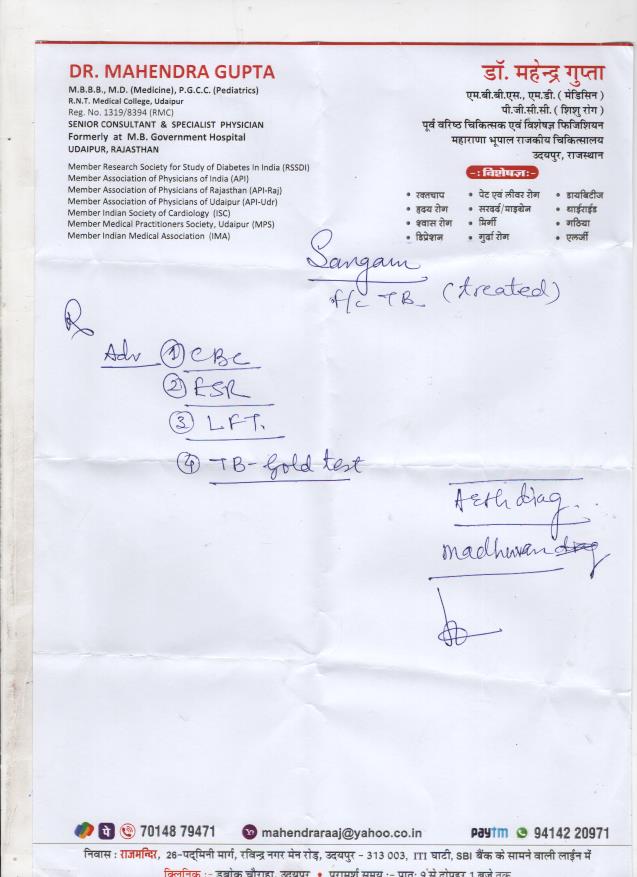 DR. MAHENDRA GUPTA
M.B.B.B., M.D. (Medicine), P.G.C.C. (Pediatrics)
R.N.T. Medical College, Udaipur
Reg. No. 1319/8394 (RMC)
SENIOR CONSULTANT & SPECIALIST PHYSICIAN
Formerly at M.B. Government Hospital
UDAIPUR, RAJASTHAN
Member Research Society for Study of Diabetes In India (RSSDI)
Member Association of Physicians of India (API)
Member Association of Physicians of Rajasthan (API-Raj)
Member Association of Physicians of Udaipur (API-Udr)
Member Indian Society of Cardiology (ISC)
Member Medical Practitioners Society, Udaipur (MPS)
Member Indian Medical Association (IMA)
डॉ. महेन्द्र गुप्ता
एम.बी.बी.एस., एम.डी. ( मेडिसिन )
पी.जी.सी.सी. ( शिशु रोग )
पूर्व वरिष्ठ चिकित्सक एवं विशेषज्ञ फिजिशियन
महाराणा भूपाल राजकीय चिकित्सालय
उदयपुर, राजस्थान
-: विशेषज्ञ:-
• रक्तचाप • पेट एवं लीवर रोग • डायबिटीज
• हृदय रोग • सरदर्द/माइग्रेन • थाईराईड
• श्वास रोग • मिर्गी • गठिया
• डिप्रेशन • गुर्दा रोग • एलर्जी
Sangam
TB (treated)
Rx
Adv ① CBC
② ESR
③ LFT.
④ TB-Gold test
diag.
madhuvan
पे 70148 79471 mahendraraaj@yahoo.co.in paytm 94142 20971
निवास : राजमन्दिर, 26-पद्मिनी मार्ग, रविन्द्र नगर मेन रोड़, उदयपुर - 313 003, ITI घाटी, SBI बैंक के सामने वाली लाईन में
क्लिनिक :- डबोक चौराहा, उदयपुर • परामर्श समय :- प्रातः 9 से दोपहर 1 बजे तक